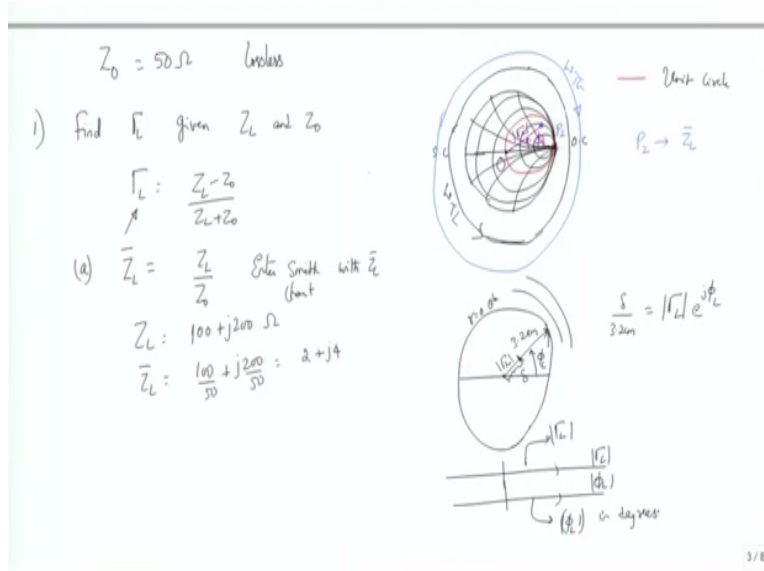 Z₀ = 50Ω Lossless
1) Find Γ_L given Z_L and Z₀
Γ_L : Z_L - Z₀ / Z_L + Z₀
(a) Z̄_L = Z_L / Z₀ Enter Smith chart with Z̄_L
Z_L : 100 + j200 Ω
Z̄_L = 100/50 + j200/50 = 2 + j4
WTG
S.C
O.C
P₂
WTL
Unit circle
P₂ → Z̄_L
3.2cm
|Γ_L|
δ
ϕ_L
δ / 3.2cm = |Γ_L| e^{jϕ_L}
|Γ_L|
|Γ_L|
|ϕ_L|
(ϕ_L) in degrees
3/8